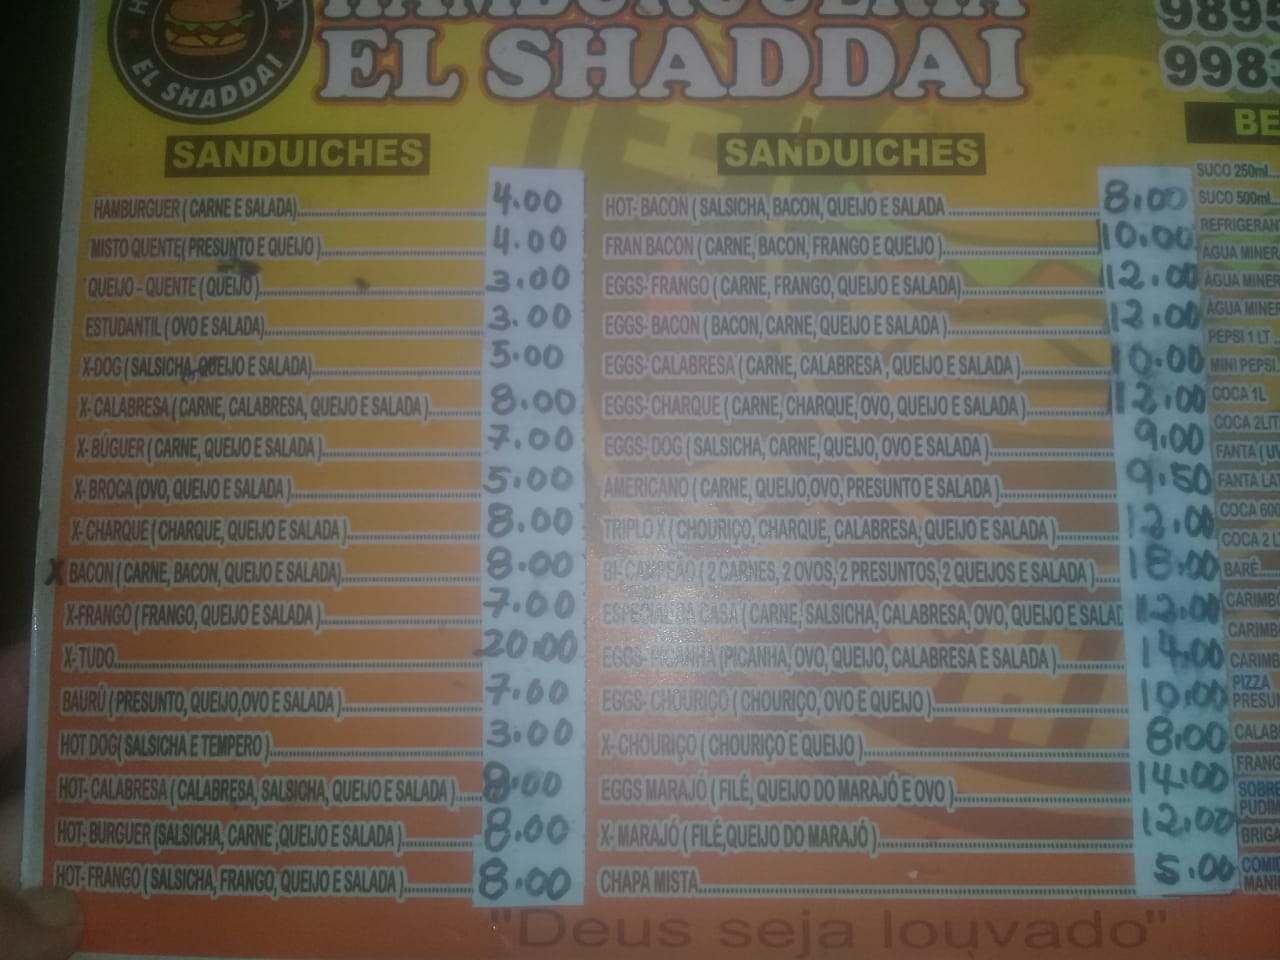 HAMBURGUERIA
EL SHADDAI
EL SHADDAI
SANDUICHES
HAMBURGUER ( CARNE E SALADA) 4.00
MISTO QUENTE( PRESUNTO E QUEIJO ) 4.00
QUEIJO - QUENTE ( QUEIJO ) 3.00
ESTUDANTIL ( OVO E SALADA) 3.00
X-DOG ( SALSICHA, QUEIJO E SALADA) 5.00
X- CALABRESA ( CARNE, CALABRESA, QUEIJO E SALADA ) 8.00
X- BÚGUER ( CARNE, QUEIJO E SALADA ) 7.00
X- BROCA (OVO, QUEIJO E SALADA ) 5.00
X- CHARQUE ( CHARQUE, QUEIJO E SALADA ) 8.00
X BACON ( CARNE, BACON, QUEIJO E SALADA ) 8.00
X-FRANGO ( FRANGO, QUEIJO E SALADA ) 7.00
X- TUDO 20.00
BAURÚ ( PRESUNTO, QUEIJO,OVO E SALADA ) 7.00
HOT DOG( SALSICHA E TEMPERO ) 3.00
HOT- CALABRESA ( CALABRESA, SALSICHA, QUEIJO E SALADA ) 8.00
HOT- BURGUER (SALSICHA, CARNE ,QUEIJO E SALADA ) 8.00
HOT- FRANGO ( SALSICHA, FRANGO, QUEIJO E SALADA ) 8.00
SANDUICHES
HOT- BACON ( SALSICHA, BACON, QUEIJO E SALADA 8.00
FRAN BACON ( CARNE, BACON, FRANGO E QUEIJO ) 10.00
EGGS- FRANGO ( CARNE, FRANGO, QUEIJO E SALADA) 12.00
EGGS- BACON ( BACON, CARNE, QUEIJO E SALADA ) 12.00
EGGS- CALABRESA ( CARNE, CALABRESA , QUEIJO E SALADA ) 10.00
EGGS- CHARQUE ( CARNE, CHARQUE, OVO, QUEIJO E SALADA ) 12.00
EGGS- DOG ( SALSICHA, CARNE, QUEIJO, OVO E SALADA ) 9.00
AMERICANO ( CARNE, QUEIJO,OVO, PRESUNTO E SALADA ) 9.50
TRIPLO X ( CHOURIÇO, CHARQUE, CALABRESA, QUEIJO E SALADA ) 12.00
BI- CAMPEÃO ( 2 CARNES, 2 OVOS, 2 PRESUNTOS, 2 QUEIJOS E SALADA ) 18.00
ESPECIAL DA CASA ( CARNE, SALSICHA, CALABRESA, OVO, QUEIJO E SALAD 12.00
EGGS- PICANHA (PICANHA, OVO, QUEIJO, CALABRESA E SALADA ) 14.00
EGGS- CHOURIÇO ( CHOURIÇO, OVO E QUEIJO ) 10.00
X- CHOURIÇO ( CHOURIÇO E QUEIJO ) 8.00
EGGS MARAJÓ ( FILÉ, QUEIJO DO MARAJÓ E OVO ) 14.00
X- MARAJÓ ( FILÉ,QUEIJO DO MARAJÓ ) 12.00
CHAPA MISTA 5.00
9895
998
BE
SUCO 250ml
SUCO 500ml
REFRIGERAN
ÁGUA MINER
ÁGUA MINER
ÁGUA MINER
PEPSI 1 LT
MINI PEPSI
COCA 1L
COCA 2LIT
FANTA ( UV
FANTA LAT
COCA 600
COCA 2 L
BARÉ
CARIMBÓ
CARIMB
CARIMB
PIZZA
PRESU
CALAB
FRANG
SOBRE
PUDIM
BRIGA
COMB
"Deus seja louvado"